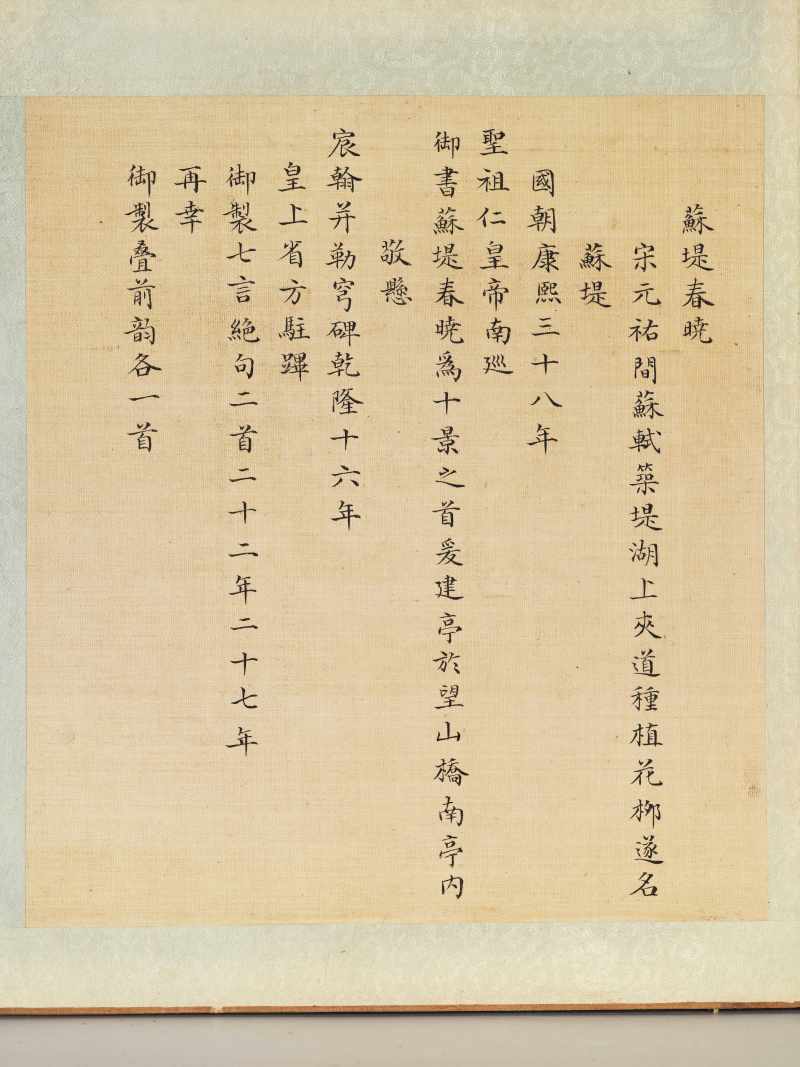 蘇堤春曉
宋元祐間蘇軾築堤湖上夾道種植花柳遂名
蘇堤
國朝康熙三十八年
聖祖仁皇帝南巡
御書蘇堤春曉爲十景之首爰建亭於望山橋南亭内
敬懸
宸翰并勒穹碑乾隆十六年
皇上省方駐蹕
御製七言絶句二首二十二年二十七年
再幸
御製叠前韵各一首